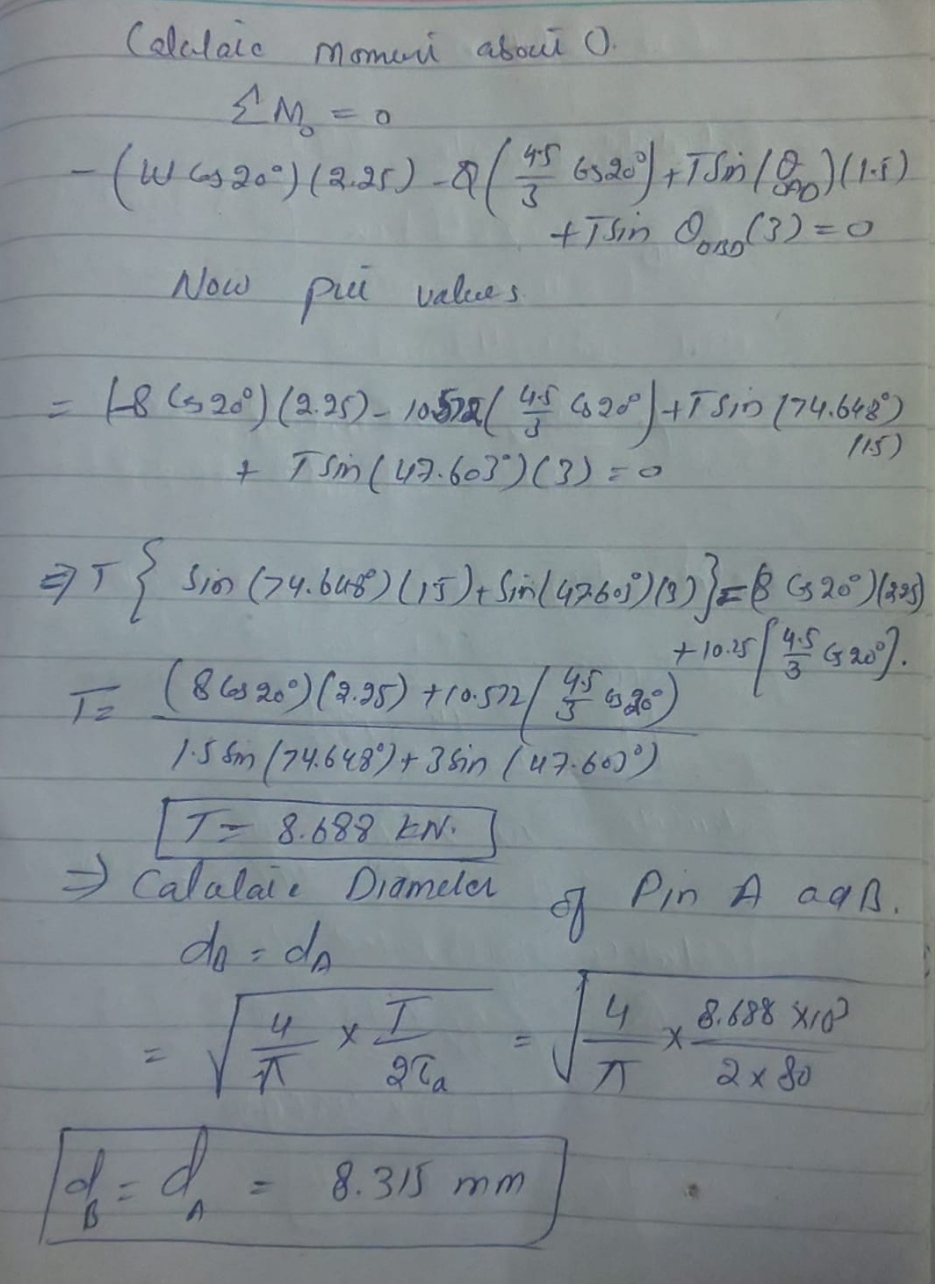 Calculate moment about O.
ΣM₀ = 0
- (W Cos 20°) (2.25) - Q ( 4.5/3 Cos 20° ) + T Sin (θ_OAD) (1.5)
+ T sin θ_OBD (3) = 0
Now put values
= (-8 Cos 20°) (2.25) - 10.572 ( 4.5/3 Cos 20° ) + T Sin (74.648°)
(1.5)
+ T Sin (47.603°) (3) = 0
⇒ T { Sin (74.648°) (1.5) + Sin (47.603°) (3) } = (8 Cos 20°) (2.25)
+ 10.25 [ 4.5/3 Cos 20° ].
T = (8 Cos 20°) (2.25) + 10.572 ( 4.5/3 Cos 20° ) / 1.5 Sin (74.648°) + 3 Sin (47.603°)
T = 8.688 kN.
⇒ Calculate Diameter of Pin A aqB.
d_B = d_A
= √( 4/π × T/2τ_a ) = √( 4/π × 8.688 × 10³ / 2 × 80 )
d_B = d_A = 8.315 mm